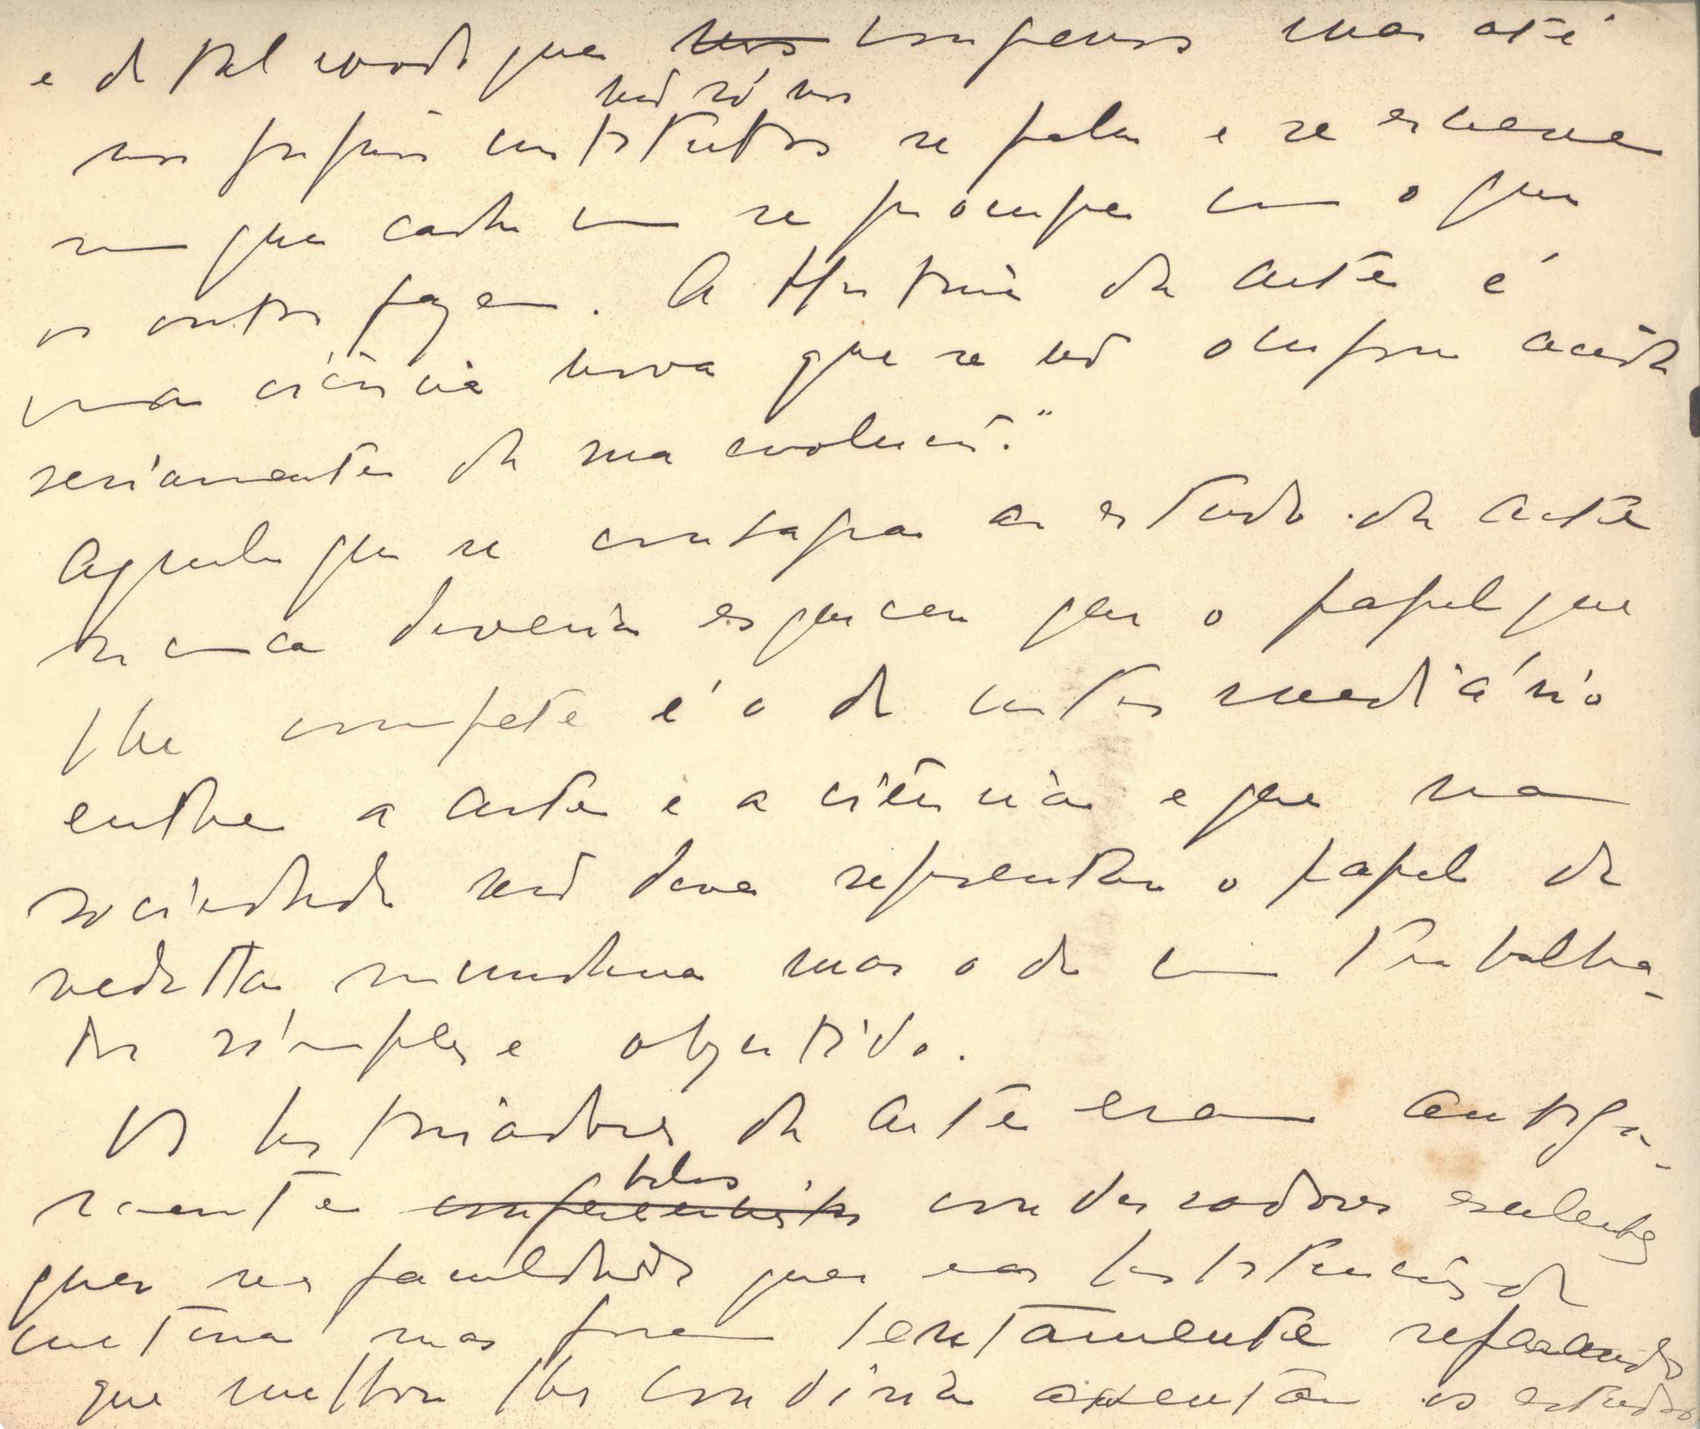 e de tal modo que nos congressos mas até
não só nos
nos próprios institutos se fala e se escreve
sem que cada um se preocupe com o que
os outros fazem. A História da arte é
uma ciência nova que se não ocupou ainda
seriamente da sua evolução."
Aquele que se consagra ao estudo da arte
nunca deveria esquecer que o papel que
lhe compete é o de intermediário
entre a arte e a ciência e que na
sociedade não deve representar o papel de
vedetta mundana mas o de um trabalha-
dor simples e objectivo.
Os historiadores da arte eram antiga-
belos
mente conferencistas conversadores excelentes
quer nas faculdades quer nas instituições de
cultura mas foram lentamente reparando
que melhor lhes condiria assentar os estudos